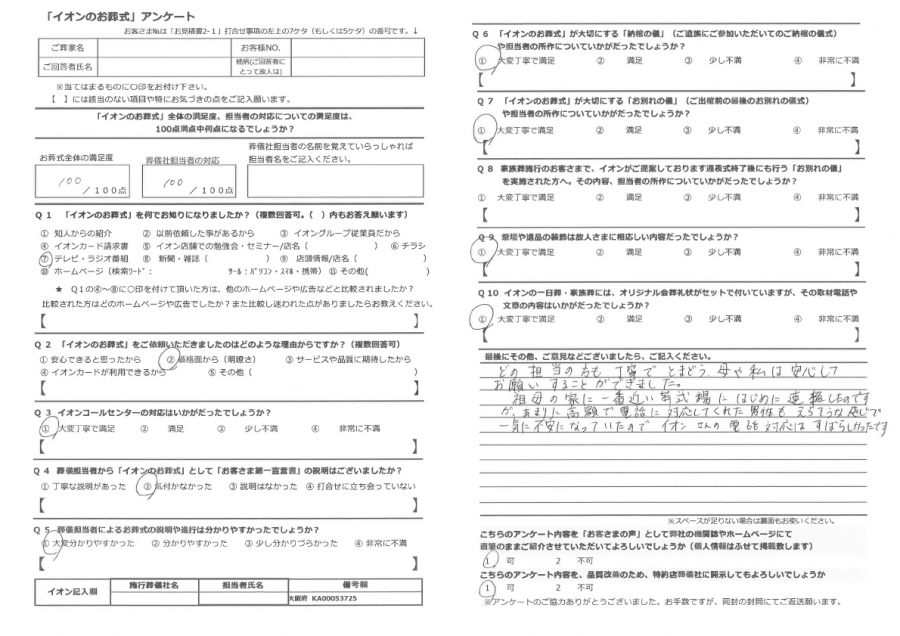 「イオンのお葬式」アンケート
お客さま№は「お見積書2-1」打合せ事項の左上の7ケタ（もしくは5ケタ）の番号です。↓
ご葬家名
お客様NO.
ご回答者氏名
続柄(ご回答者にとって故人は)
※当てはまるものに○印をお付け下さい。
【 】には該当のない項目や特にお気づきの点をご記入願います。
「イオンのお葬式」全体の満足度、担当者の対応についての満足度は、
100点満点中何点になるでしょうか？
お葬式全体の満足度
葬儀社担当者の対応
葬儀社担当者の名前を覚えていらっしゃれば
担当者名をご記入ください。
100 ／100点
100 ／100点
Q 1 「イオンのお葬式」を何でお知りになりましたか？（複数回答可。（ ）内もお答え願います）
① 知人からの紹介 ② 以前依頼した事があるから ③ イオングループ従業員だから
④ イオンカード請求書 ⑤ イオン店舗での勉強会・セミナー/店名（ ） ⑥ チラシ
⑦ テレビ・ラジオ番組 ⑧ 新聞・雑誌（ ） ⑨ 店頭情報/店名（ ）
⑩ ホームページ（検索ﾜｰﾄﾞ： ﾂｰﾙ：ﾊﾟｿｺﾝ・ｽﾏﾎ・携帯） ⑪ その他( )
★ Q1の④～⑧に○印を付けて頂いた方は、他のホームページや広告などと比較されましたか？
比較された方はどのホームページや広告でしたか？また比較し迷われた点がありましたらお教えください。
【 】
Q 2 「イオンのお葬式」をご依頼いただきましたのはどのような理由からですか？（複数回答可）
① 安心できると思ったから ② 価格面から（明瞭さ） ③ サービスや品質に期待したから
④ イオンカードが利用できるから ⑤ その他（ ）
【 】
Q 3 イオンコールセンターの対応はいかがだったでしょうか？
① 大変丁寧で満足 ② 満足 ③ 少し不満 ④ 非常に不満
【 】
Q 4 葬儀担当者から「イオンのお葬式」として「お客さま第一宣言書」の説明はございましたか？
① 丁寧な説明があった ② 気付かなかった ③ 説明はなかった ④ 打合せに立ち会っていない
【 】
Q 5 葬儀担当者によるお葬式の説明や進行は分かりやすかったでしょうか？
① 大変分かりやすかった ② 分かりやすかった ③ 少し分かりづらかった ④ 非常に不満
【 】
イオン記入欄
施行葬儀社名 担当者氏名 備考欄
大阪府 KA00053725
Q 6 「イオンのお葬式」が大切にする「納棺の儀」（ご遺族にご参加いただいてのご納棺の儀式）
や担当者の所作についていかがだったでしょうか？
① 大変丁寧で満足 ② 満足 ③ 少し不満 ④ 非常に不満
【 】
Q 7 「イオンのお葬式」が大切にする「お別れの儀」（ご出棺前の最後のお別れの儀式）
や担当者の所作についていかがだったでしょうか？
① 大変丁寧で満足 ② 満足 ③ 少し不満 ④ 非常に不満
【 】
Q 8 家族葬施行のお客さまで、イオンがご提案しております通夜式終了後にも行う「お別れの儀」
を実施された方へ。その内容、担当者の所作についていかがだったでしょうか？
① 大変丁寧で満足 ② 満足 ③ 少し不満 ④ 非常に不満
【 】
Q 9 祭壇や遺品の装飾は故人さまに相応しい内容だったでしょうか？
① 大変丁寧で満足 ② 満足 ③ 少し不満 ④ 非常に不満
【 】
Q 10 イオンの一日葬・家族葬には、オリジナル会葬礼状がセットで付いていますが、その取材電話や
文章の内容はいかがだったでしょうか？
① 大変丁寧で満足 ② 満足 ③ 少し不満 ④ 非常に不満
【 】
最後にその他、ご意見などございましたら、ご記入ください。
どの担当の方も丁寧でとまどう母や私は安心して
お願いすることができました。
祖母の家に一番近い葬式場にはじめに連絡したのです
が、あまりに高額で電話に対応してくれた男性もえらそうな感じで
一気に不安になっていたのでイオンさんの電話対応はすばらしかったです
※スペースが足りない場合は裏面もお使いください。
こちらのアンケート内容を「お客さまの声」として弊社の機関誌やホームページにて
直筆のままご紹介させていただいてよろしいでしょうか（個人情報はふせて掲載致します）
1 可 2 不可
こちらのアンケート内容を、品質改善のため、特約店葬儀社に開示してもよろしいでしょうか
1 可 2 不可
※アンケートのご協力ありがとうございました。お手数ですが、同封の封筒にてご返送願います。